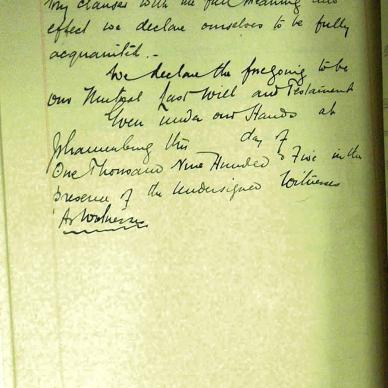 my clauses with the full meaning and
effect we declare ourselves to be fully
acquainted.-
We declare the foregoing to be
our Mutual Last Will and Testament
Given under our Hands at
Johannesburg this day of
One Thousand Nine Hundred & Five in the
presence of the undersigned Witnesses
As Witnesses